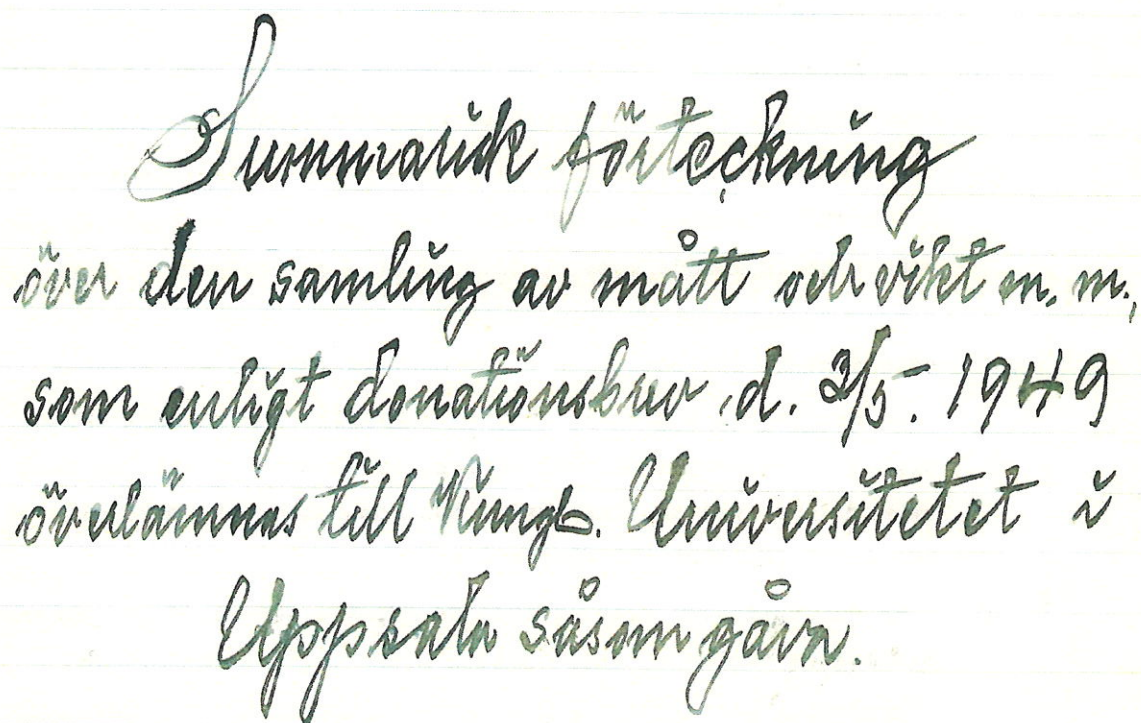 Summarisk förteckning
över den samling av mått och vikt m. m.,
som enligt donationsbrev d. 2/5. 1949
överlämnas till Kungl. Universitetet i
Uppsala såsom gåva.